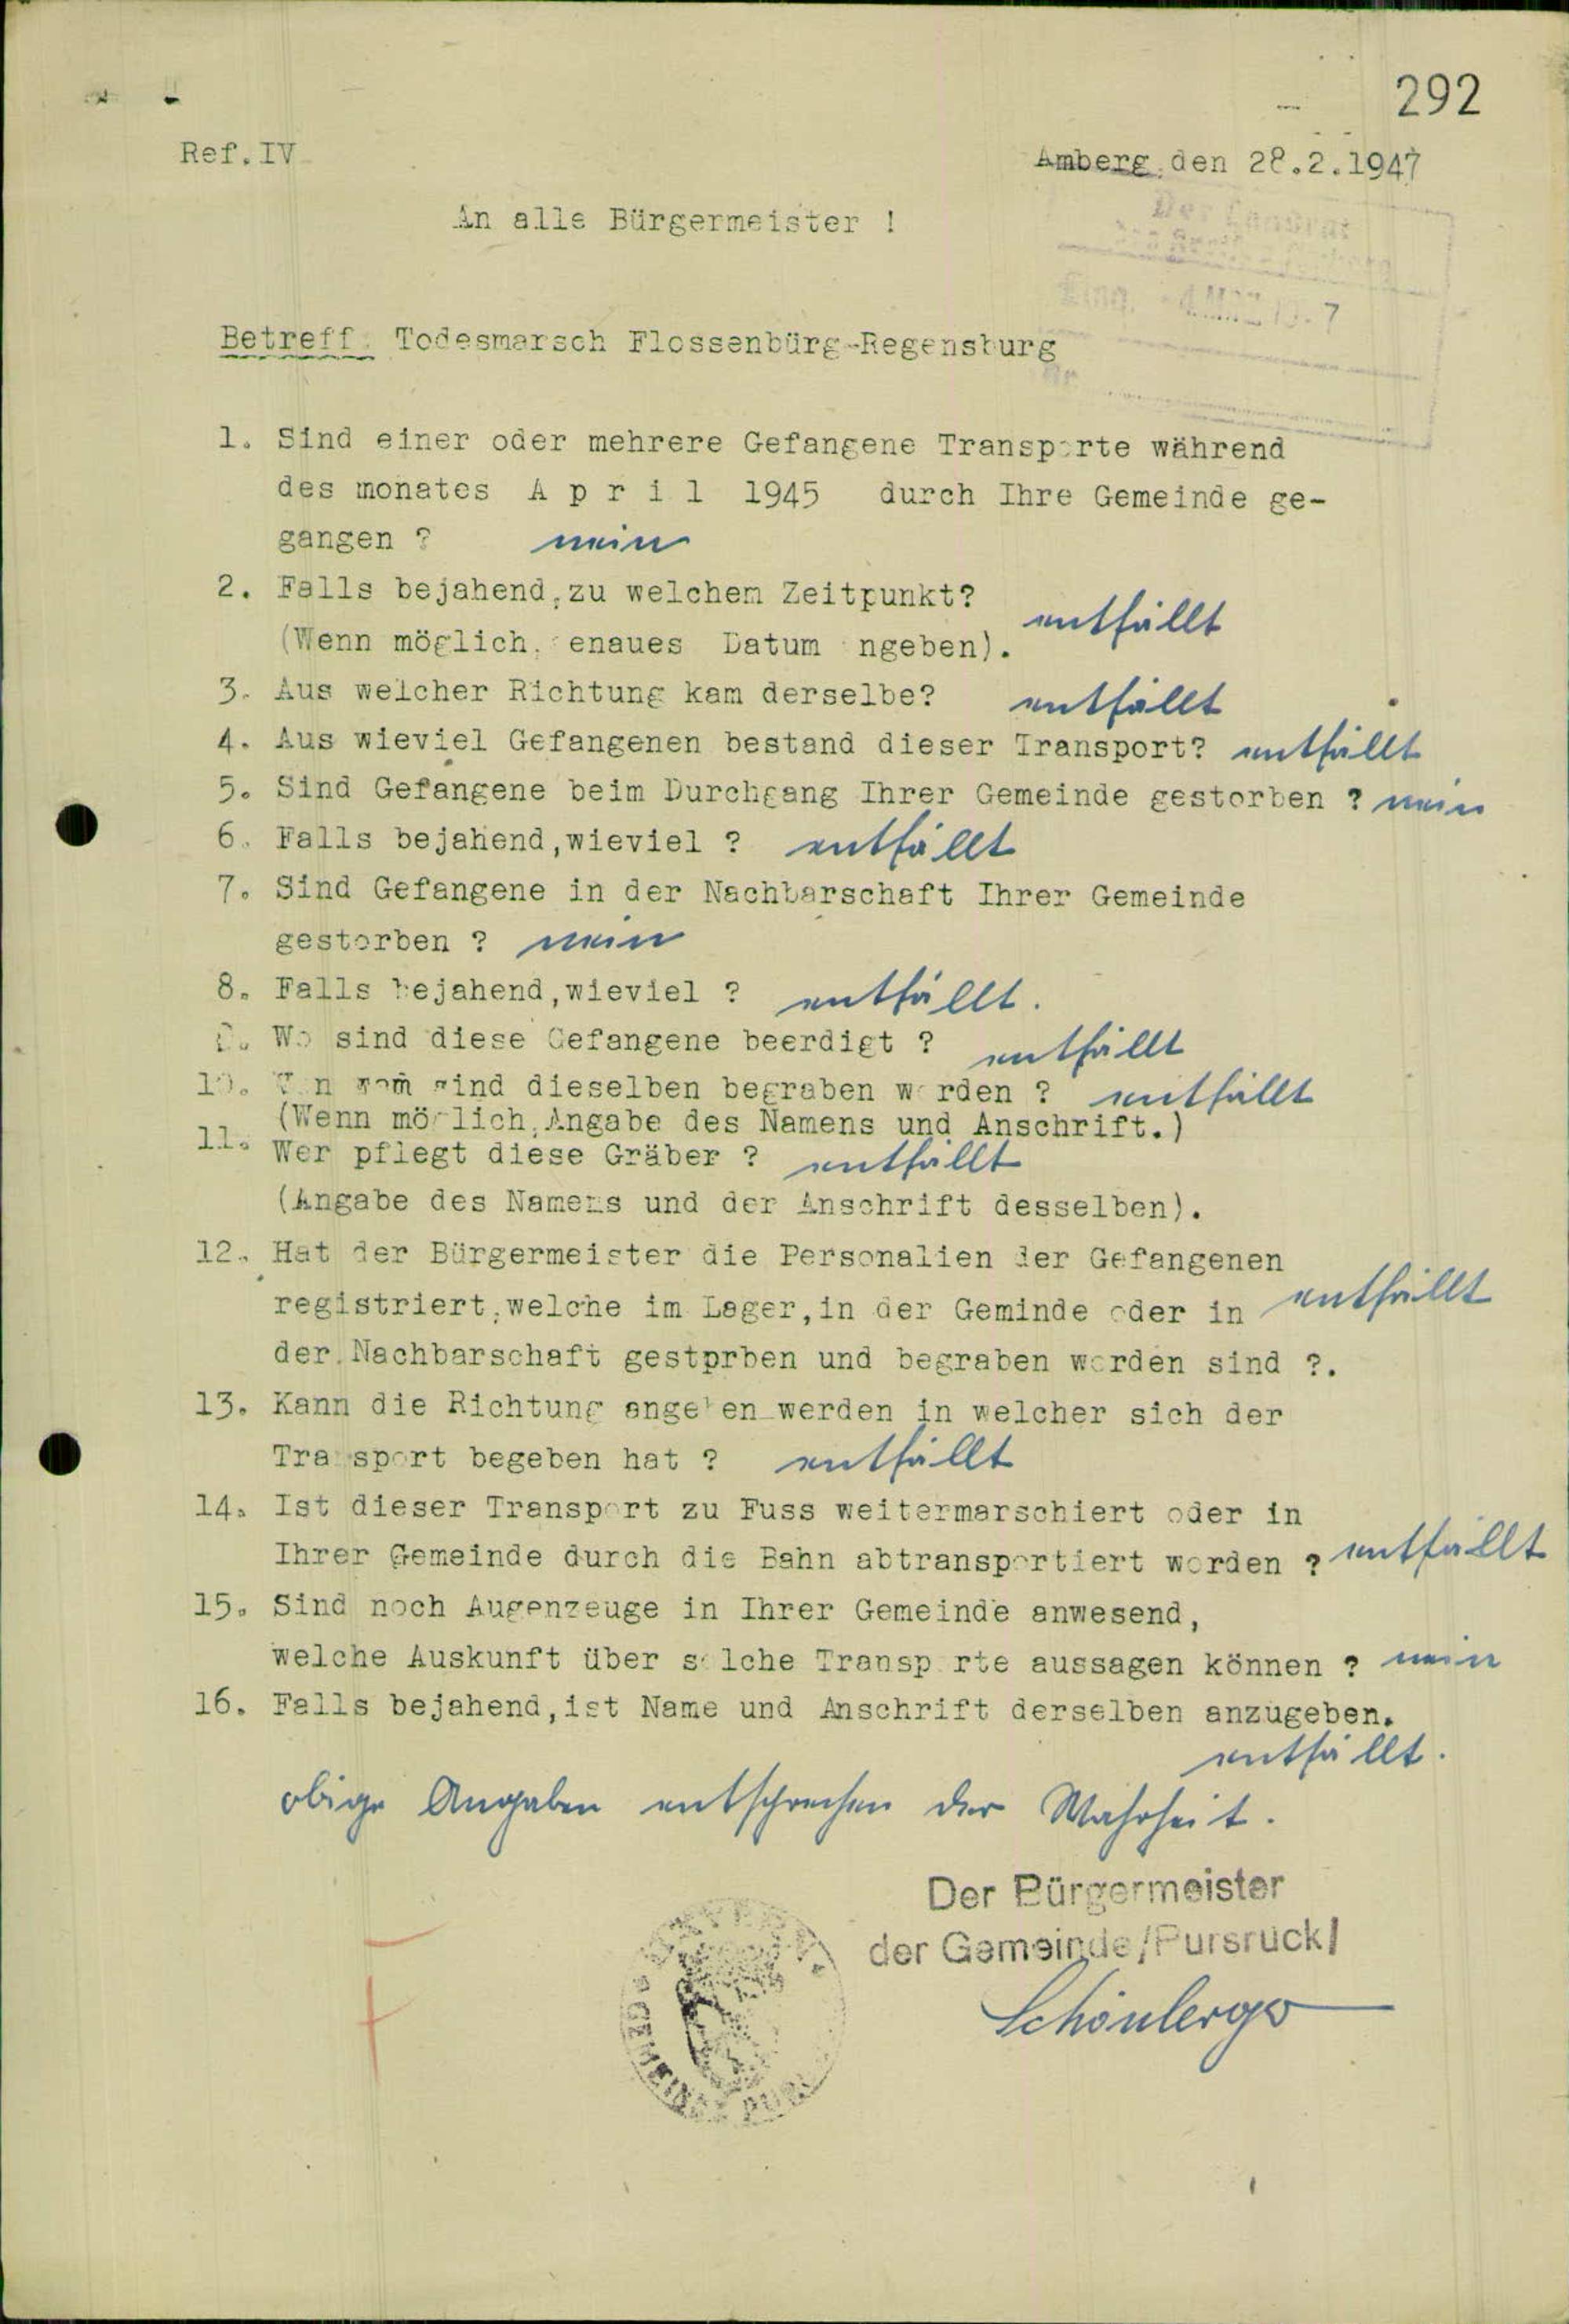 292
Ref. IV
Amberg, den 28.2.1947
An alle Bürgermeister !
Betreff: Todesmarsch Flossenbürg-Regensburg
1. Sind einer oder mehrere Gefangene Transporte während
des monates A p r i l 1945 durch Ihre Gemeinde ge-
gangen ? nein
2. Falls bejahend, zu welchem Zeitpunkt?
entfällt
(Wenn möglich, genaues Datum angeben).
3. Aus welcher Richtung kam derselbe? entfällt
4. Aus wieviel Gefangenen bestand dieser Transport? entfällt
5. Sind Gefangene beim Durchgang Ihrer Gemeinde gestorben ? nein
6. Falls bejahend, wieviel ? entfällt
7. Sind Gefangene in der Nachbarschaft Ihrer Gemeinde
gestorben ? nein
8. Falls bejahend, wieviel ? entfällt.
9. Wo sind diese Gefangene beerdigt ? entfällt
10. Von wem sind dieselben begraben worden ? entfällt
(Wenn möglich, Angabe des Namens und Anschrift.)
11. Wer pflegt diese Gräber ? entfällt
(Angabe des Namens und der Anschrift desselben).
12. Hat der Bürgermeister die Personalien der Gefangenen
registriert, welche im Lager, in der Geminde oder in entfällt
der Nachbarschaft gestprben und begraben worden sind ?.
13. Kann die Richtung angeben werden in welcher sich der
Transport begeben hat ? entfällt
14. Ist dieser Transport zu Fuss weitermarschiert oder in
Ihrer Gemeinde durch die Bahn abtransportiert worden ? entfällt
15. Sind noch Augenzeuge in Ihrer Gemeinde anwesend,
welche Auskunft über solche Transporte aussagen können ? nein
16. Falls bejahend, ist Name und Anschrift derselben anzugeben.
entfällt.
obige Angaben entsprechen der Wahrheit.
Der Bürgermeister
der Gemeinde/Pursruck/
Schönberger
GEMEINDE